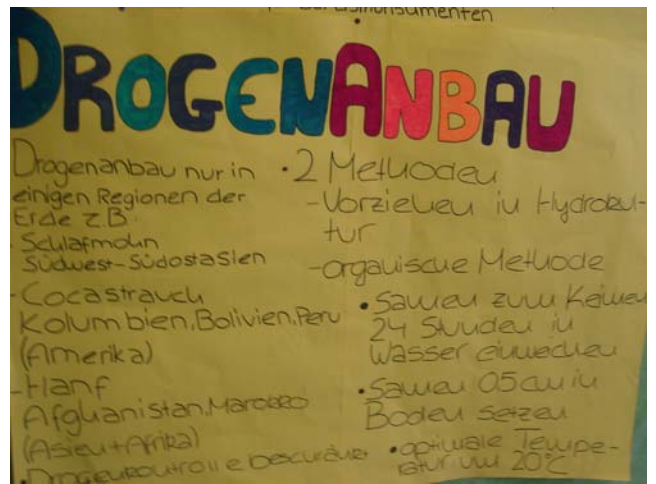 konsumenten
DROGENANBAU
Drogenanbau nur in
einigen Regionen der
Erde z.B.
- Schlafmohn
Südwest-Südostasien
- Cocastrauch
Kolumbien, Bolivien, Peru
(Amerika)
- Hanf
Afghanistan, Marokko
(Asien + Afrika)
• Drogenkontrolle
• 2 Methoden
- Vorziehen in Hydrokul-
tur
- organische Methode
• Samen zum Keimen
24 Stunden in
Wasser einweichen
• Samen 0,5 cm in
Boden setzen
• optimale Tempe-
ratur um 20°C